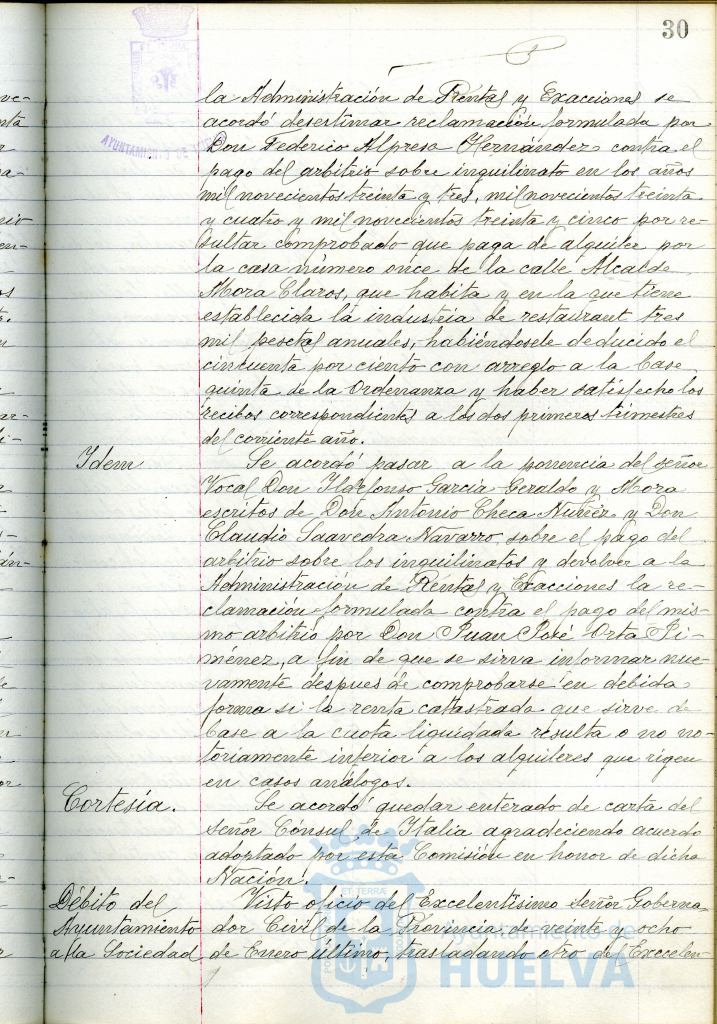 30
AYUNTAMIENTO DE
la Administración de Rentas y Exacciones se
acordó desestimar reclamación formulada por
Don Federico Alpresa Hernández contra el
pago del arbitrio sobre inquilinato en los años
mil novecientos treinta y tres, mil novecientos treinta
y cuatro y mil novecientos treinta y cinco por re-
sultar comprobado que paga de alquiler por
la casa número once de la calle Alcalde
Mora Claros, que habita y en la que tiene
establecida la industria de restaurant tres
mil pesetas anuales, habiéndosele deducido el
cincuenta por ciento con arreglo a la base
quinta de la Ordenanza y haber satisfecho los
recibos correspondientes a los dos primeros trimestres
del corriente año.
Idem
Se acordó pasar a la ponencia del señor
Vocal Don Ildefonso García Geraldo y Mora
escritos de Don Antonio Checa Núñez y Don
Claudio Saavedra Navarro, sobre el pago del
arbitrio sobre los inquilinatos y devolver a la
Administración de Rentas y Exacciones la re-
clamación formulada contra el pago del mis-
mo arbitrio por Don Juan José Orta Ji-
ménez, a fin de que se sirva informar nue-
vamente despues de comprobarse en debida
forma si la renta catastrada que sirve de
base a la cuota liquidada resulta o no no-
toriamente inferior a los alquileres que rigen
en casos análogos.
Cortesía.
Se acordó quedar enterado de carta del
señor Cónsul de Italia agradeciendo acuerdo
adoptado por esta Comisión en honor de dicha
Nación.
Débito del
Ayuntamiento
a la Sociedad
Visto oficio del Excelentísimo señor Goberna-
dor Civil de la Provincia de veinte y ocho
de Enero último, trasladando otro del Excelen-
Ayuntamiento de
HUELVA